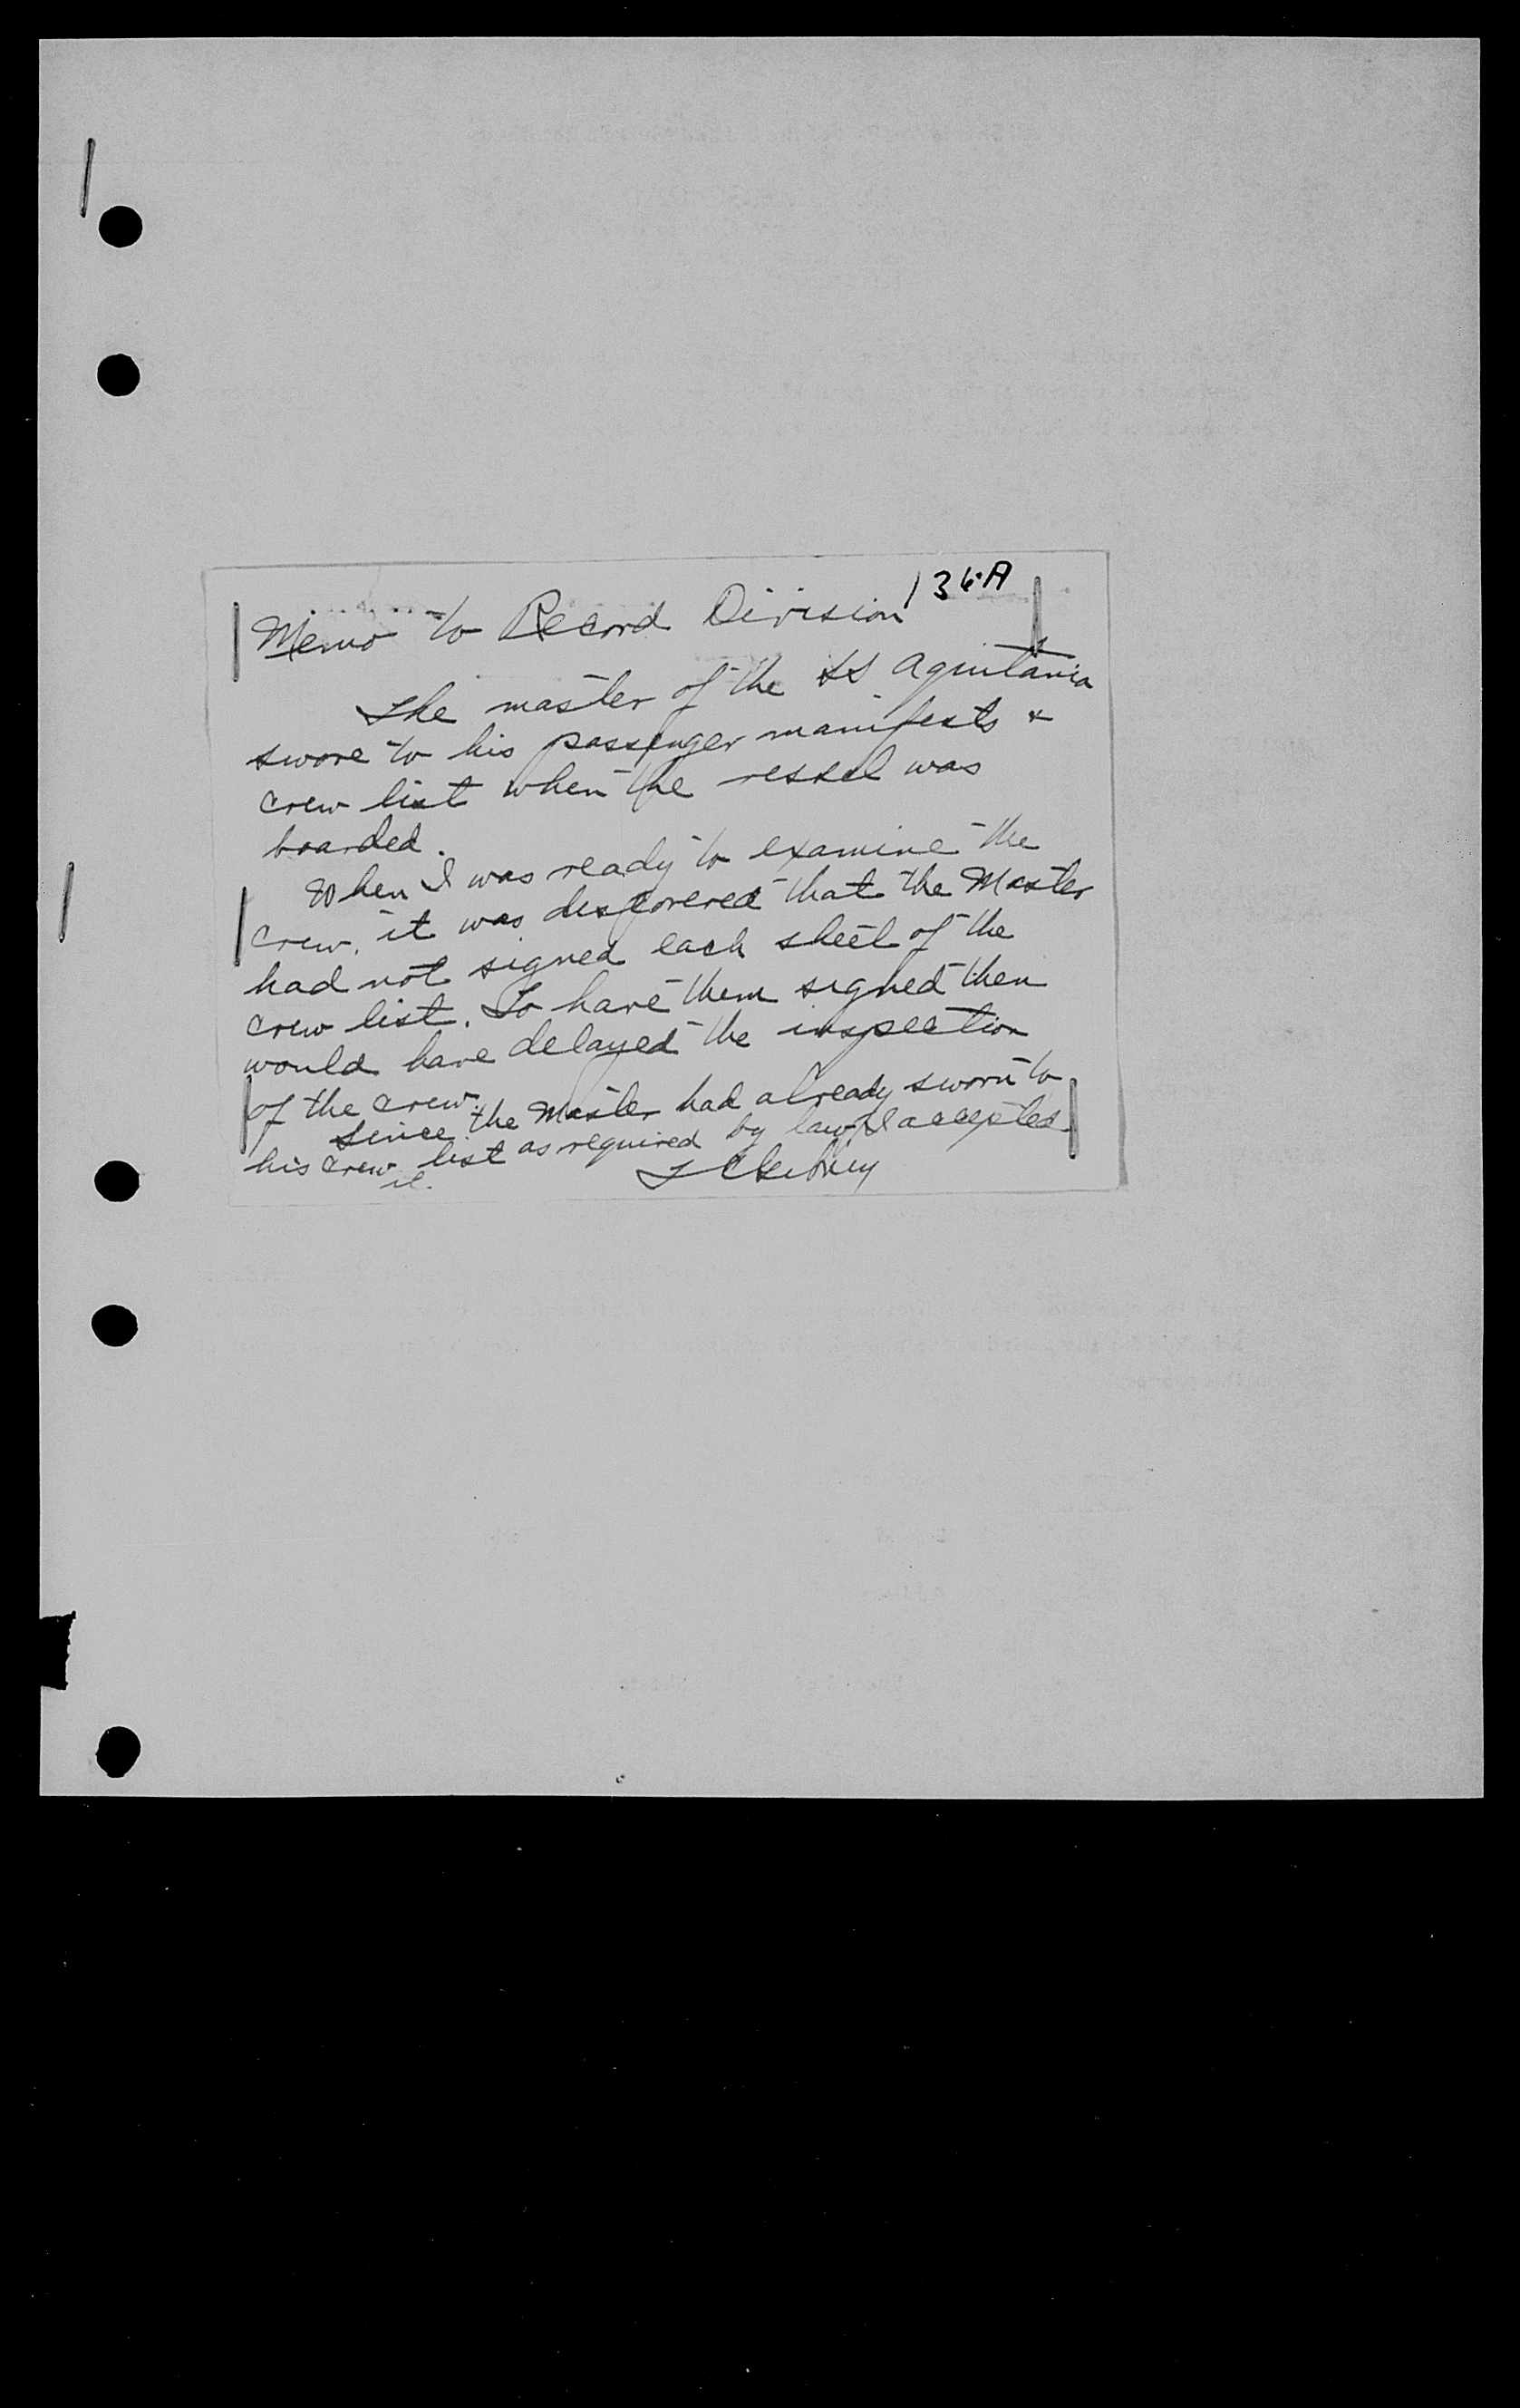 136-A
Memo to Record Division
The master of the SS Aquitania
swore to his passenger manifests &
crew list when the vessel was
boarded.
When I was ready to examine the
crew, it was discovered that the Master
had not signed each sheet of the
crew list. To have them signed then
would have delayed the inspection
of the crew.
Since the Master had already sworn to
his crew list as required by law, I accepted
it.